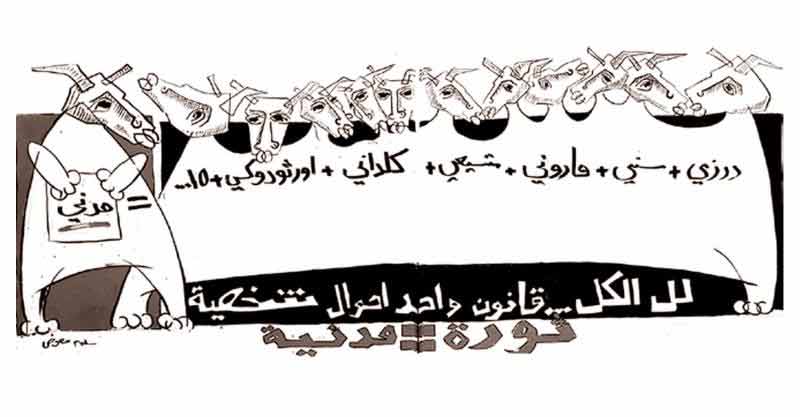 درزي + سني + ماروني + شيعي + كلداني + اورثودوكي + ١٥...
= مدني
لل الكل... قانون واحد احوال شخصية
ثورة = مدنية